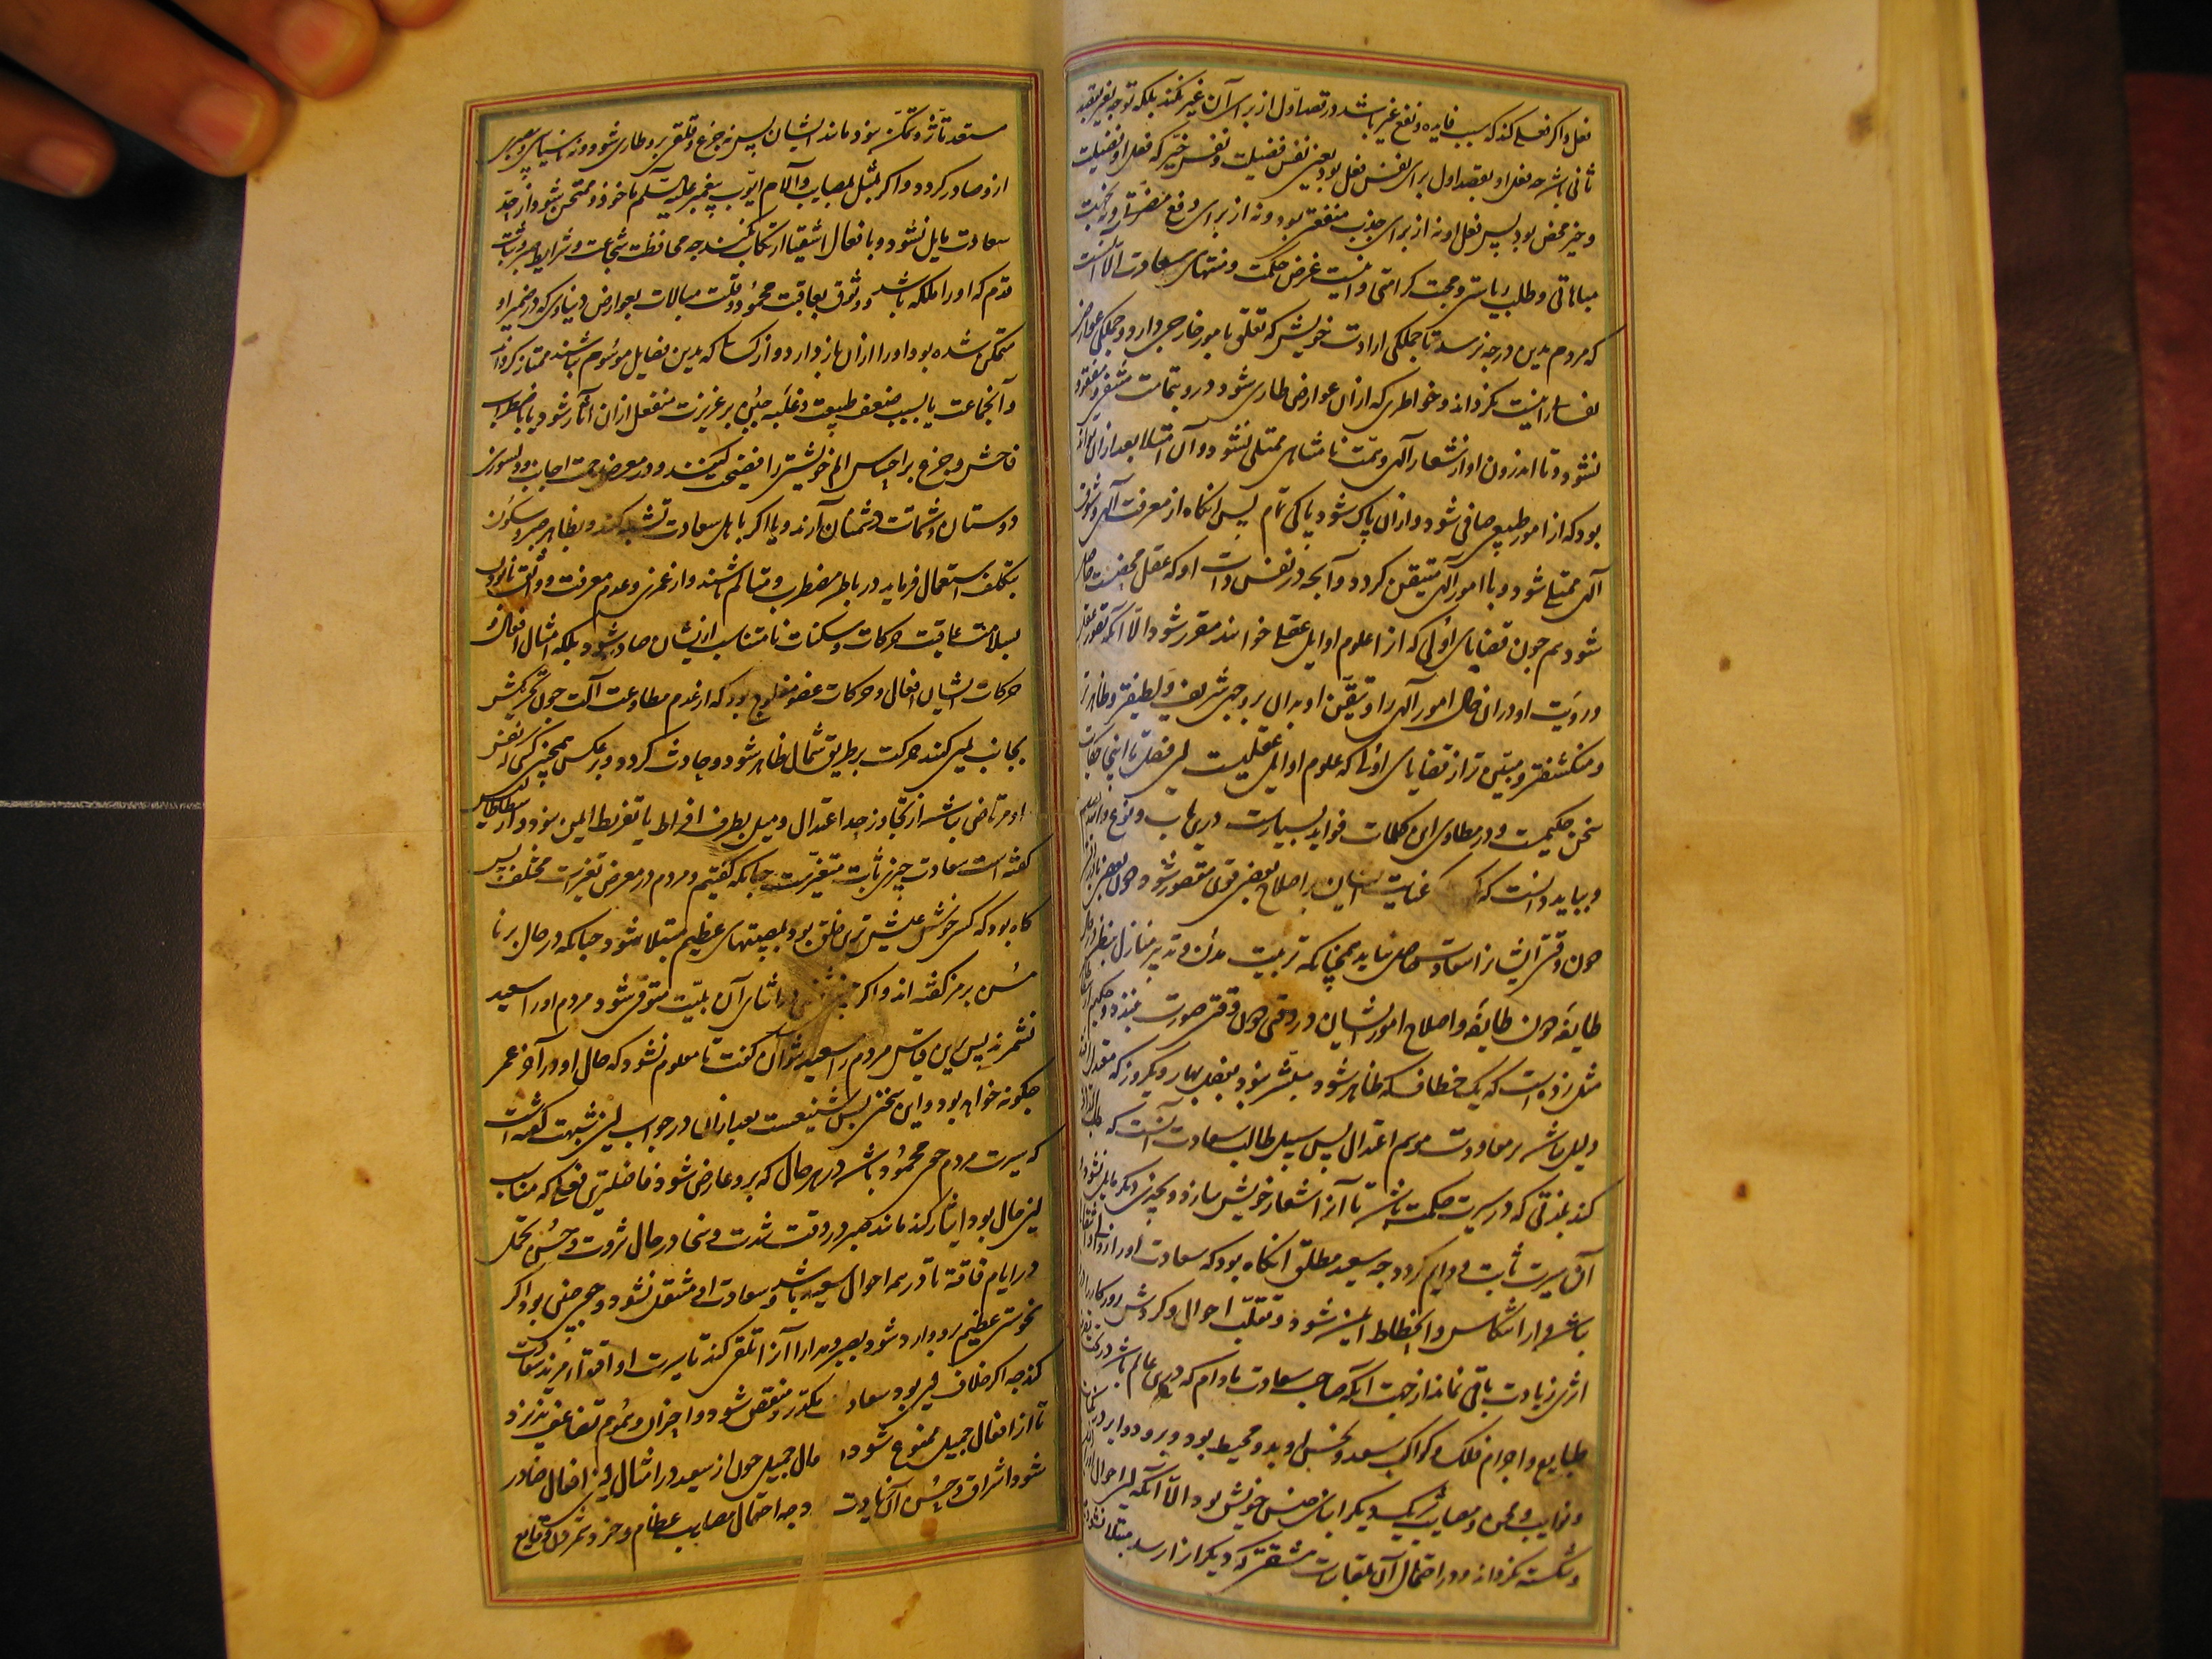 فعل و اکر فعلی کند که سبب فایده و نفع غیر باشد در قصد اول از برای آن غیر نکند بلکه توجه بغیر بقصد
ثانی باشد چه فعل او بقصد اول برای نفس فعل بود یعنی نفس فضیلت و نفس خیر که فعل او فضیلت
و خیر محض بود پس فعل او نه از برای جذب منفعتی بود و نه از برای دفع مضرتی و نه بجهت
مباهاتی و طلب ریاستی و محبت کرامتی و اینست غرض حکمت و منتهای سعادت الا آنست
که مردم بدین درجه نرسد تا جملکی ارادت خویش که تعلق بامور خارجی دارد و جملکی عوارض
نفسانی را نیست نکرداند و خواطری که از ان عوارض طاری شود در و بتمامت منتفی و مفقود
نشود و تا اندرون او از شعار الهی و همت نامتناهی ممتلی نشود و آن امتلا بعد از ان تواند
بود که از امور طبیعی صافی شود و از ان پاک شود پاکی تمام پس انکاه از معرفت الهی و شوق
الهی ممتلی شود و با امور الهی متیقن کردد و آنچه در نفس ذات او که عقل محضست حاصل
شود هم چون قضایای اولی که از اعلوم اوایل عقلی خوانند مقرر شود الا آنکه تصور عقل
و رویت او در ان حال امور الهی را و تیقن او بدان بر وجهی شریف و لطیفتر و ظاهرتر
و منکشفتر و مبین تر از قضایای اولی که علوم اوایل عقلیست این فصل تا اینجا حکایت
سخن حکیمست و در مطاوی این کلمات فواید بسیارست درین باب و نوع والله اعلم
و بباید دانست که عنایت انسان بر اصلاح بعضی قوی مقصور شود دون بعضی یا در وقتی
دون وقتی ایشانرا سعادت حاصل نیاید همچنانکه تربیت مدن و تدبیر منازل بنظر در حال
طایفه دون طایفه و اصلاح امور ایشان در وقتی دون وقتی صورت نبندد و حکیم ارسطاطالیس
مثل زده است که یک خطاف که ظاهر شود مبشر نبود بفصل بهار و یکروز که معتدل افتد
دلیل نباشد بر معاودت موسم اعتدال پس سبیل طالب سعادت آنست که طلب التذاذ
کند بلذتی که در سیرت حکمت باشد تا آنرا شعار خویش سازد و بچیزی دیکر مایل نشود و
آن سیرت ثابت و دایم کردد چه سعید مطلق انکاه بود که سعادت او را زوالی و انتقالی
نباشد و از انتکاس و انحطاط ایمن شود و تقلب احوال و کردش روزکار را در
اثری زیادت باقی نماند از جهت آنکه صاحب سعادت مادام که درین عالم باشد در تحت تصرف
طبایع و اجرام فلک و کواکب سعد و نحس او بدو محیط بود و بر و دوایر در
و نوایب و محن و مصایب شریک دیکر ابنای جنس خویش بود الا آنکه این احوال او را
شکسته نکرداند و در احتمال آن مقاسات مشقتی که دیکرانرا رسد مبتلا نشود
مستعد تاثر و تمکن نبود مانند ایشان پس نه جزع و قلقی برو طاری شود و نه ناسپاسی و بیصبری
ازو صادر کردد و اکر بمثل بمصایب و آلام ایوب پیغمبر علیه السلم ماخوذ و ممتحن شود از حد
سعادت مایل نشود و بافعال اشقیا ارتکاب نکند چه محافظت شجاعت و شرایط صبر و ثبات
قدم که او را ملکه باشد و وثوق بعاقبت محمود و قلت مبالات بعوارض دنیاوی که در ضمیر او
متمکن شده بود او را از ان باز دارد و از کسانی که بدین فضایل موسوم نباشند ممتاز کرداند
و آنجماعت یا بسبب ضعف طبیعت و غلبه جبن بر غریزت منفعل از ان آثار شود یا باضطراب
فاحش و جزع بر احساس الم خویشتن را فضیحت کنند و در معرض رحمت اجانب و دلسوزی
دوستان و شماتت دشمنان آرند و یا اکر باهل سعادت تشبه کند و بظاهر صبر و سکون
بتکلف استعمال فرماید در باطن مضطرب و متالم باشند و از غمزی و عدم معرفت و وثوق نابودن
بسلامت عاقبت حرکات و سکنات نامتناسب از یشان صادر شود بلکه امثال افعال و
حرکات ایشان افعال و حرکات عضو مفلوج بود که از عدم مطاوعت آلت چون تحریکش
بجانب یمین کند حرکت بطریق شمال ظاهر شود و حادث کردد و بر عکس همچنین کسی که نفس
او مرتاض نباشد از تجاوز حد اعتدال و میل بطرف افراط یا تفریط ایمن نبود و ارسطاطالیس
کفته است سعادت چیزی ثابت غیر متغیرست چنانکه کفتیم و مردم در معرض تغیرات مختلف پس
کاه بود که کسی خوش عیش ترین خلق بود بمصیبتهای عظیم مبتلا شود چنانکه در حال برنا
مس برمز کفته اند و اکر در اثنای آن بلیت متوفی شود مردم او را سعید
نشمرند پس برین قیاس مردم را سعید نتوان کفت تا معلوم نشود که حال او در آخر عمر
چکونه خواهد بود و این سخنی بس شنیعست بعد از ان در جواب این شبهت کفته است
که سیرت مردم چون محمود باشد در هر حال که برو عارض شود فاضلترین فعلی که مناسب
این حال بود ایثار کند مانند صبر در وقت شدت و سخا در حال ثروت و حسن تحمل
در ایام فاقه تا در همه احوال سعید باشد و سعادت او منتقل نشود و چون چنین بود اکر
نحوستی عظیم برو وارد شود بصبر و مدارا آنرا تلقی کند تا سیرت او اقتضا مزید سعادت
کند چه اکر خلاف این بود سعادت مکدر و منغص شود و احزان و غموم تضاعف پذیرد
تا از افعال جمیل ممنوع شود و مال جمیل چون از سعید در امثال این افعال صادر
شود اشراق و حسن آن زیادت و چه احتمال مصایب عظام و خرد شمردن وقایع